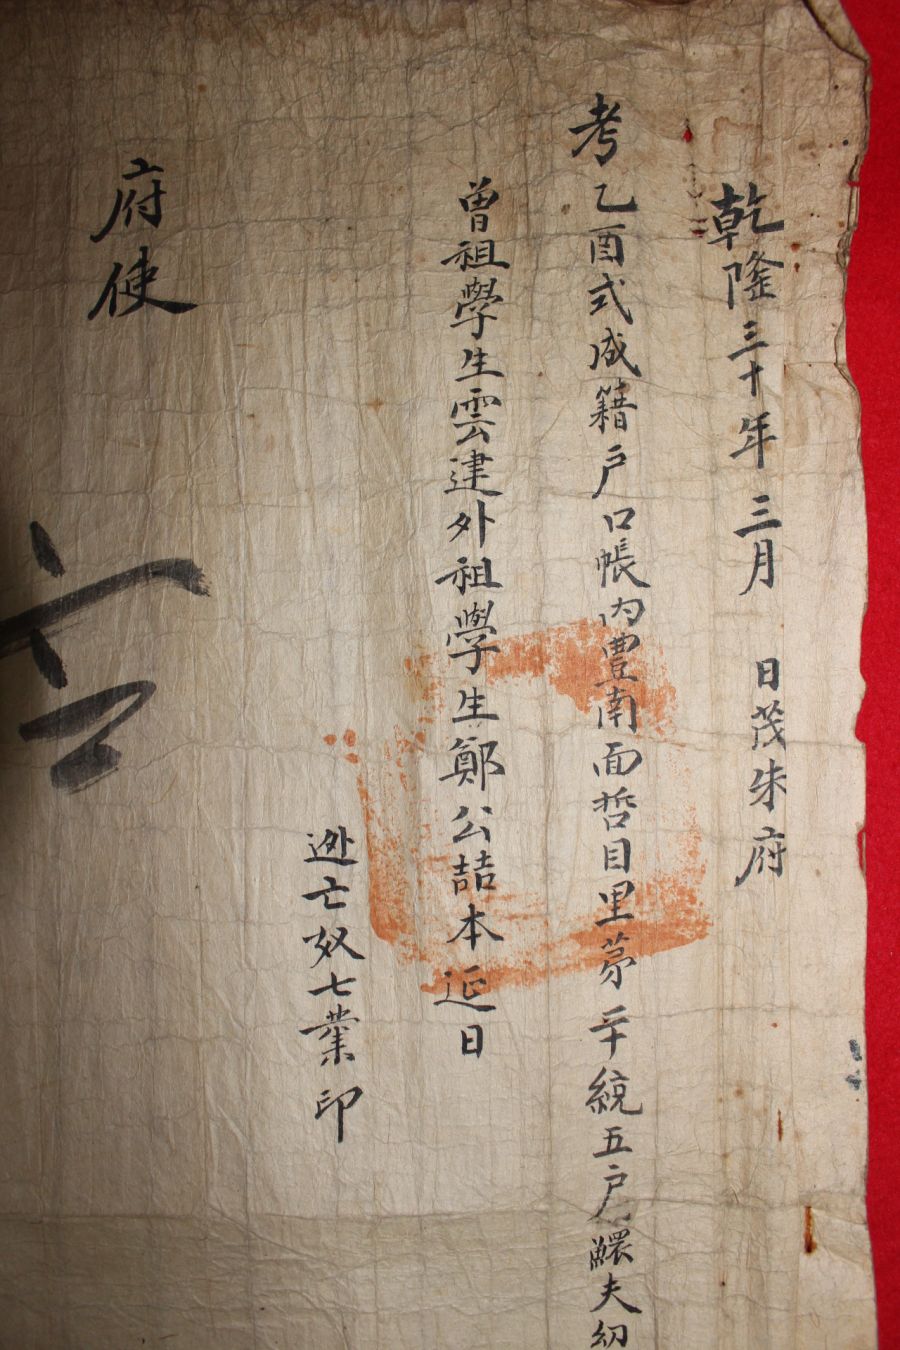 乾隆三十年三月 日茂朱府
考乙酉式成籍戶口帳內豊南面哲目里苐 統五戶鰥夫幼
曾祖學生雲建外祖學生鄭公喆本延日
迯亡奴七業印
府使